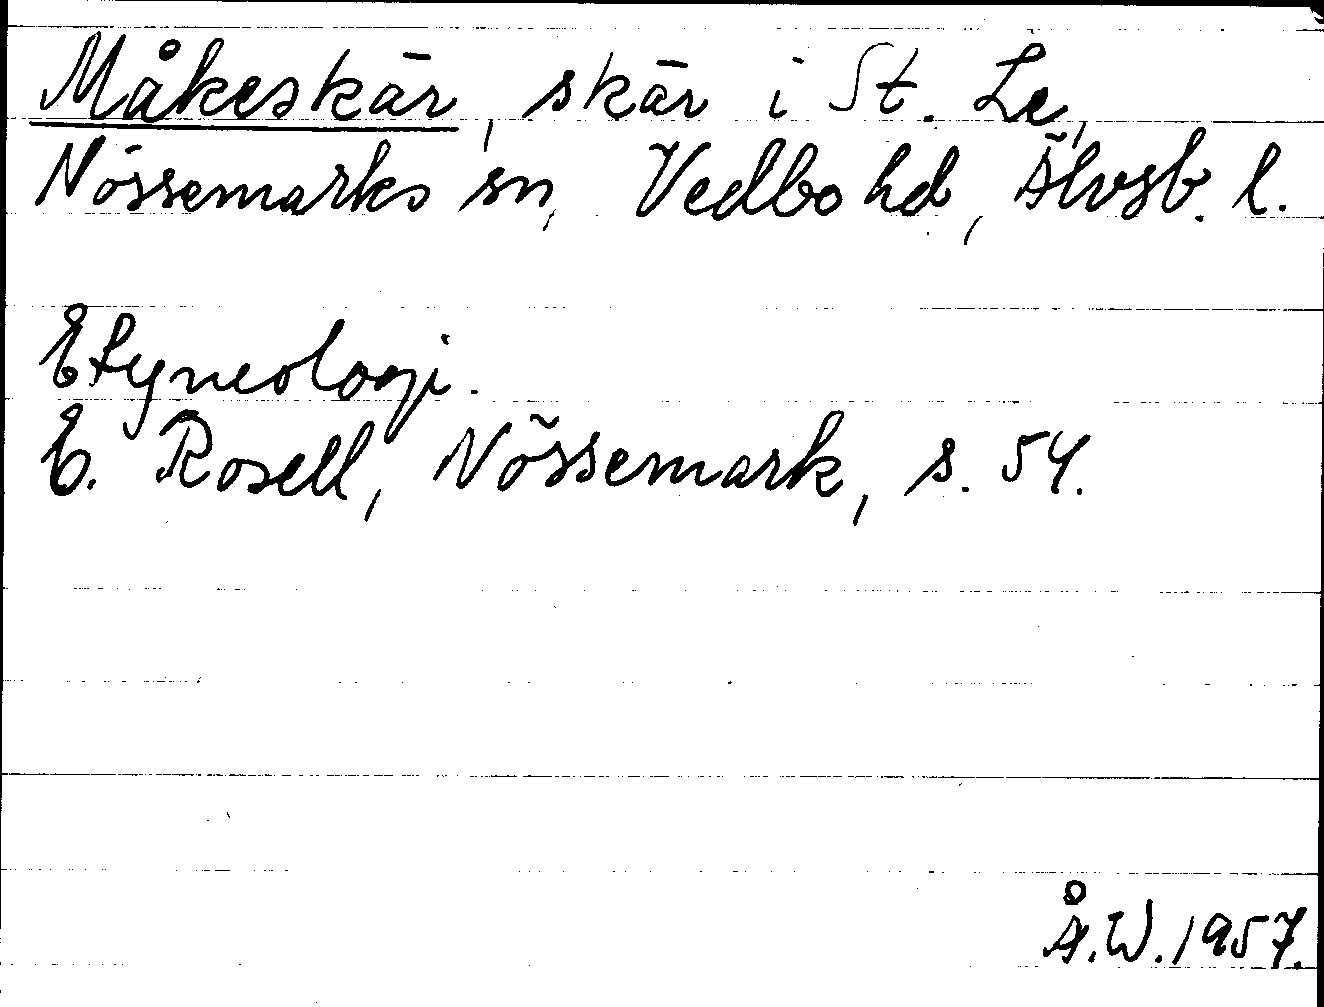 Måkeskär, skär i St. Le,
Nössemarks sn, Vedbo hd, Älvsb. l.
Etymologi.
E. Rosell, Nössemark, s. 54.
Å.W. 1957.